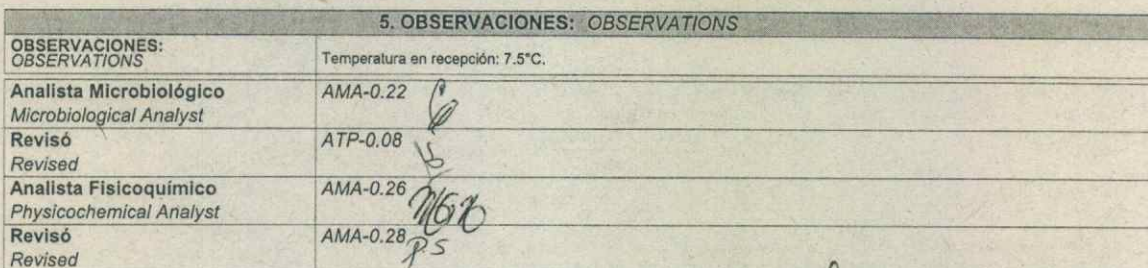 5. OBSERVACIONES: OBSERVATIONS
OBSERVACIONES:
OBSERVATIONS
Temperatura en recepción: 7.5°C.
Analista Microbiológico
Microbiological Analyst
AMA-0.22
Revisó
Revised
ATP-0.08
Analista Fisicoquímico
Physicochemical Analyst
AMA-0.26
Revisó
Revised
AMA-0.28
P.S